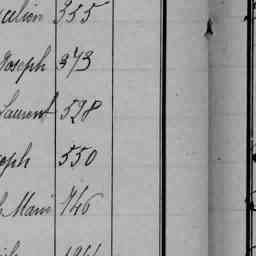 355
Joseph 373
Laurent 528
eph 550
Marie 746